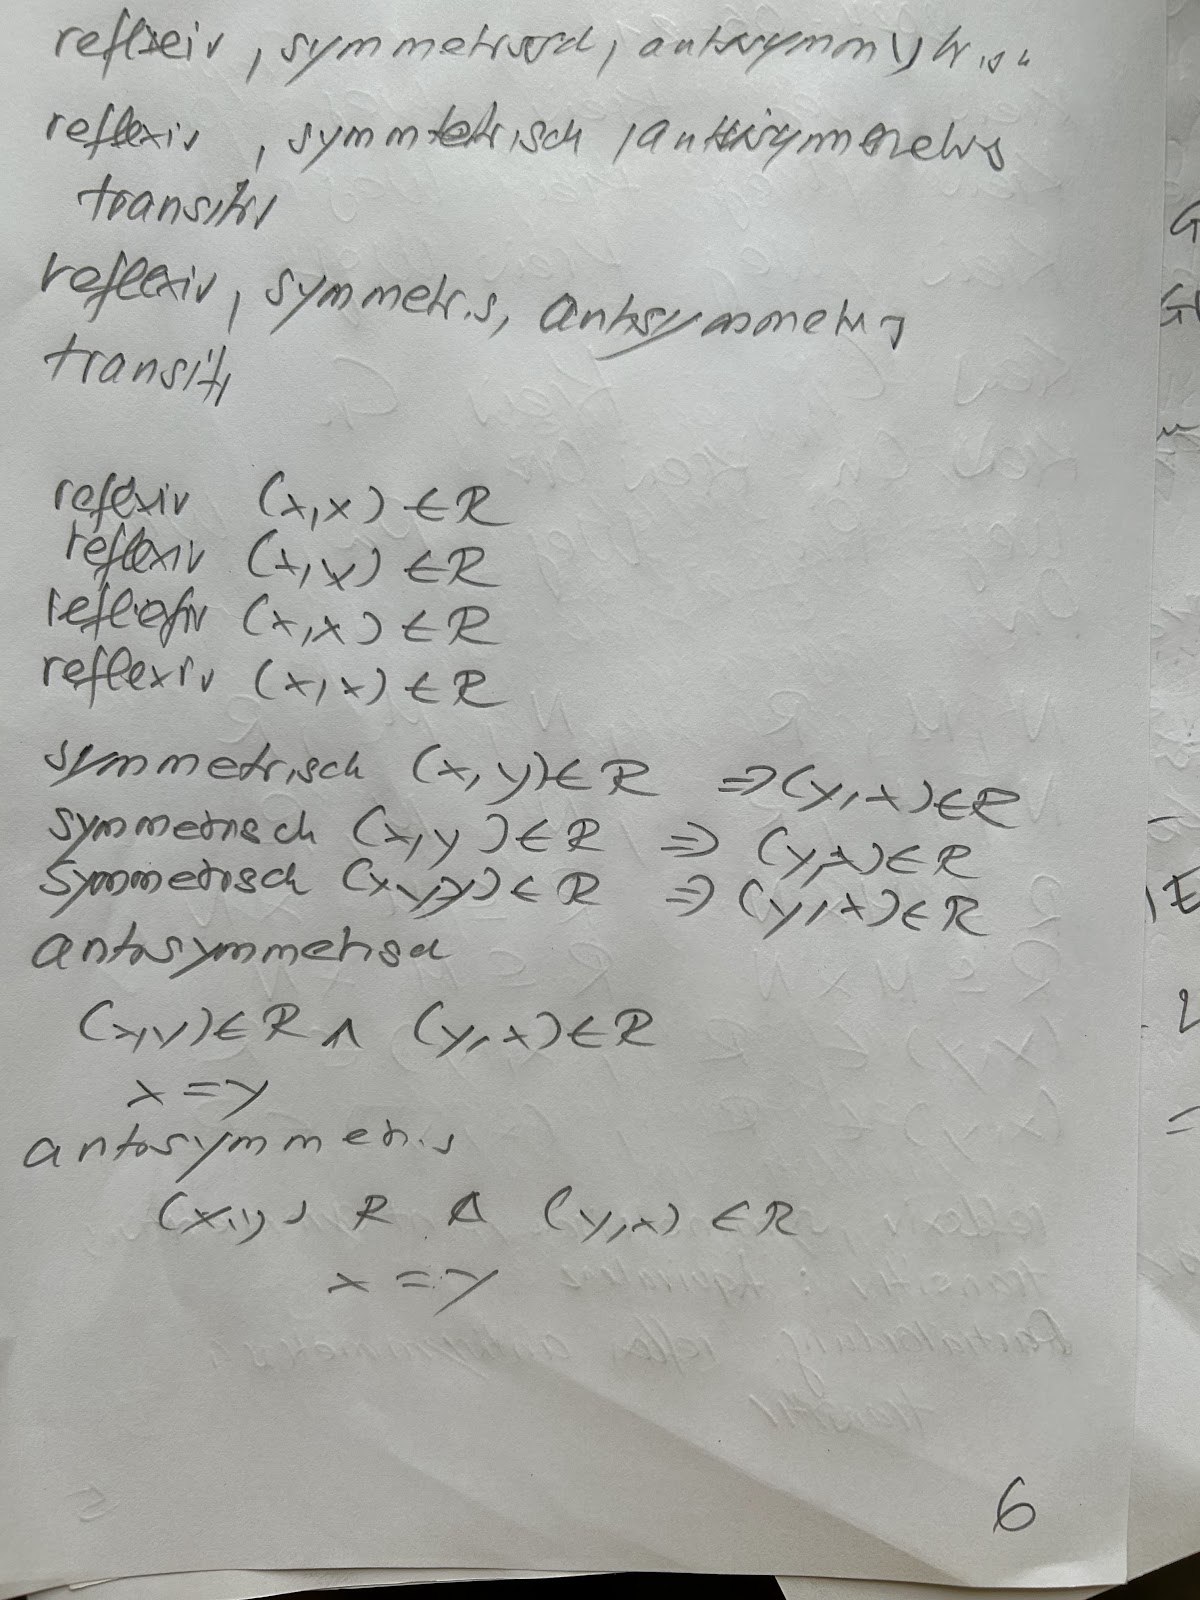 reflxeiv, symmetrisd, antisymmytris
reflexiv, symmtetrisch, antisymmetris
transitiv
reflexiv, symmetris, antisymmetris
transiti
reflexiv (x,x) ∈ R
reflexiv (x,x) ∈ R
reflexiv (x,x) ∈ R
reflexiv (x,x) ∈ R
symmetrisch (x,y) ∈ R ⇒ (y,x) ∈ R
symmetrisch (x,y) ∈ R ⇒ (y,x) ∈ R
symmetrisch (x,y) ∈ R ⇒ (y,x) ∈ R
antisymmetrisc
(x,y) ∈ R ∧ (y,x) ∈ R
x = y
antisymmetris
(x,y) R ∧ (y,x) ∈ R
x = y
6